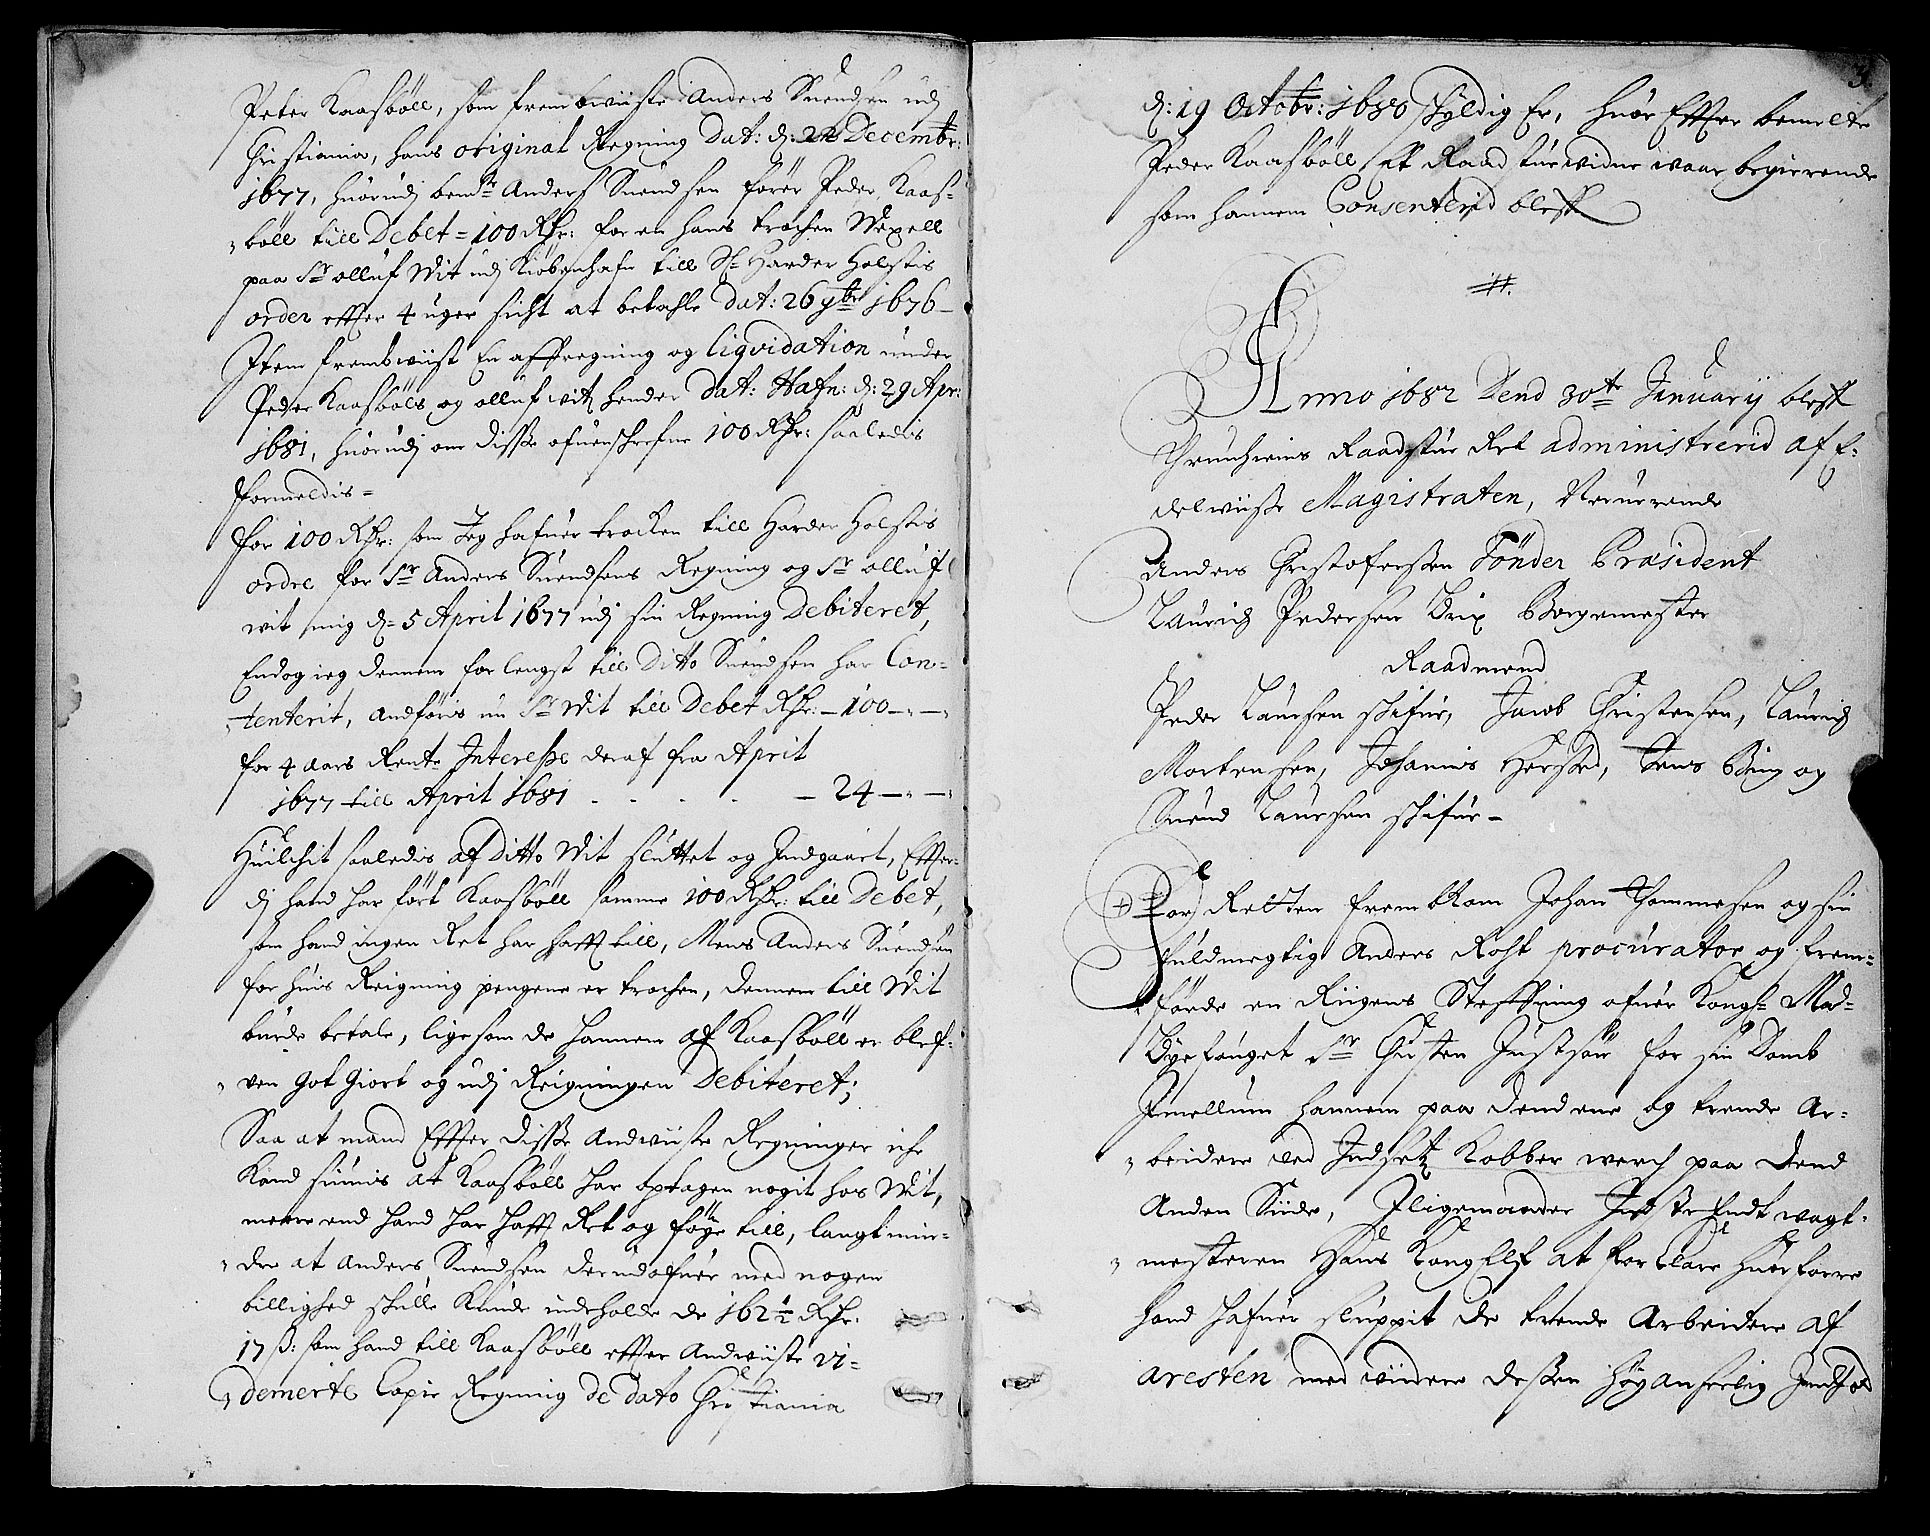 Peter Kaasböll, som frembwiiste Anders Suendsen udj
Christiania, hans original Regning Dat: d: 22 Decembr:
1677, huorudj bemte Anders Suendsenförer Peder Kaas-
böll till Debet = 100 Rdr: for en hans trochen Wexell
paa Sr olluf Wit udj Kiöbenhafn till Sl Harder Holstis
order effter 4 uger sicht at betahle Dat: 26 9br 1676 -
Item frembwiist En affregning og liqvidation under
Peder Kaasbøls og olluf witz hender Dat: Hafn: d: 29 Apr:
1681, huorudj om Disse ofuenschrefne 100 Rdr: saaledis
formeldis =
For 100 Rdr: som Jeg hafuer trocken till Harder Holstis
ordre for Sr Anders Suendsens Regning og Sr olluf
wit mig d= 5 April 1677 udj sin Regning Debiteret,
Endog ieg dennem for lengst till Ditto Suendsen har Con-
tenterit, andföris nu Sr Wit till Debet Rdr: - 100 - " - "
for 4 aars Rente Interesse deraf fra April
1677 till April 1681 . . . . - 24 - " - "
Huilchit saaledis af Ditto Wit sluttet og Indgaait, Effter-
dj hand har fört Kaasböll samme 100 Rdr: till Debet,
som hand ingen Ret har hafft till, Mens Anders Suendsen
for huis Reigning pengene er trochen, dennem till Wit
burde betale, ligesom de hannem af Kaasböll er blef-
ven got giort og udj Reigningen Debiteret;
Saa at mand Effter Disse andwiiste Regninger iche
Kand siunis at Kaasböll har optagen nogit hos Wit,
meere end hand har hafft Ret og føye till, langt min-
dre at Anders Suendsen derudofuer med nogen
billighed schulle kunde indeholde de 162 1/2 Rdr:
17 s: som hand till Kaasböll effter andwiiste vi-
demerte Copie Regning de dato Christiania
3.
d: 19 Octobr: 1680 schyldig Er, huor Effter bemelte
Peder Kaasböll Et Raadstue widne waar begierende
som hannem Consenterid bleff
Anno 1682 Dend 30te January bleff
Trunhiems Raadstue Ret administrerid af E-
delwiise Magistraten, Nerverende
Anders Christofersen Tönder Præsident
Lauridz Pedersen Brix Borgemester
Raadmend
Peder Laursen schifuer, Jacob Christensen, Lauridz
Mortensen, Johannis Hersed, Jens Bing og
Suend Laursen schifuer -
For Retten fremkom Johan Thommesen og sin
fuldmegtig Anders Rohst procurator og frem-
förde en Riigens Steffning ofuer Kongl: May:
Byefouget Sr Christen Justsön for sin Domb
Imellum hannem paa dend ene og trende Ar-
beidere ved Indsetz Kobber werch paa dend
Anden Siide, Iligemaader Indsteffndt wagt-
mesteren Hans Kongelf at forklare huorforre
hand hafuer sluppit de trende Arbeidere af
aresten med widere dessen høyanseelig Indhold